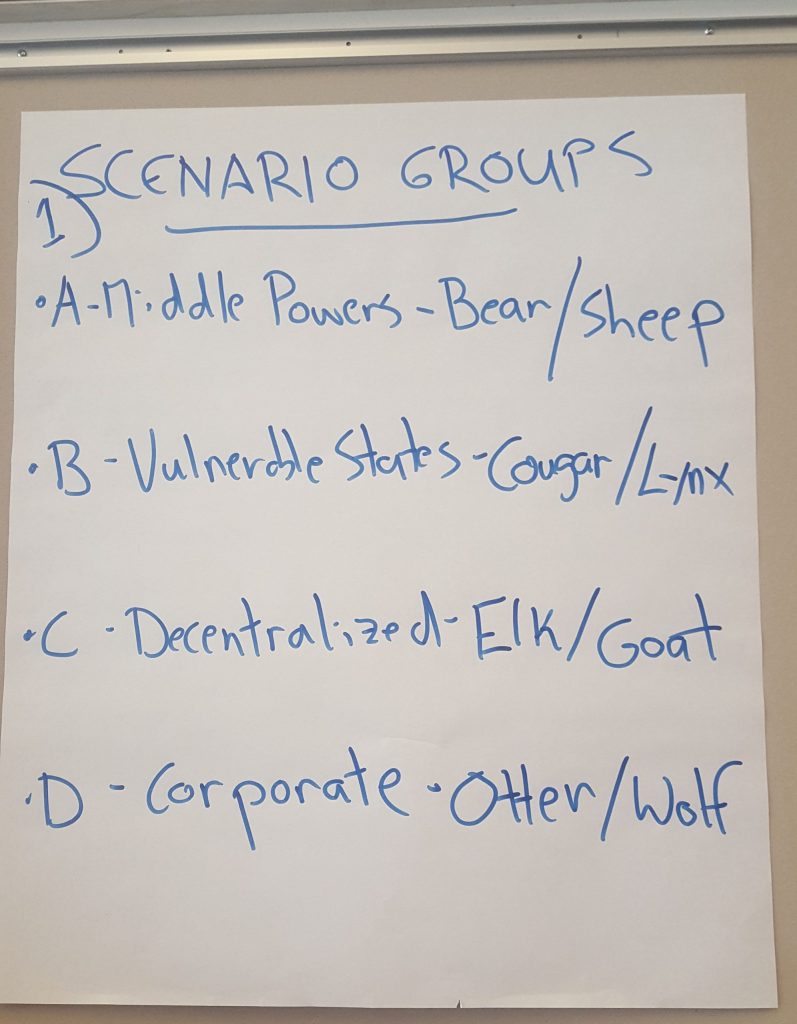 SCENARIO GROUPS
1)
• A - Middle Powers - Bear/Sheep
• B - Vulnerable States - Cougar/Lynx
• C - Decentralized - Elk/Goat
• D - Corporate - Otter/Wolf